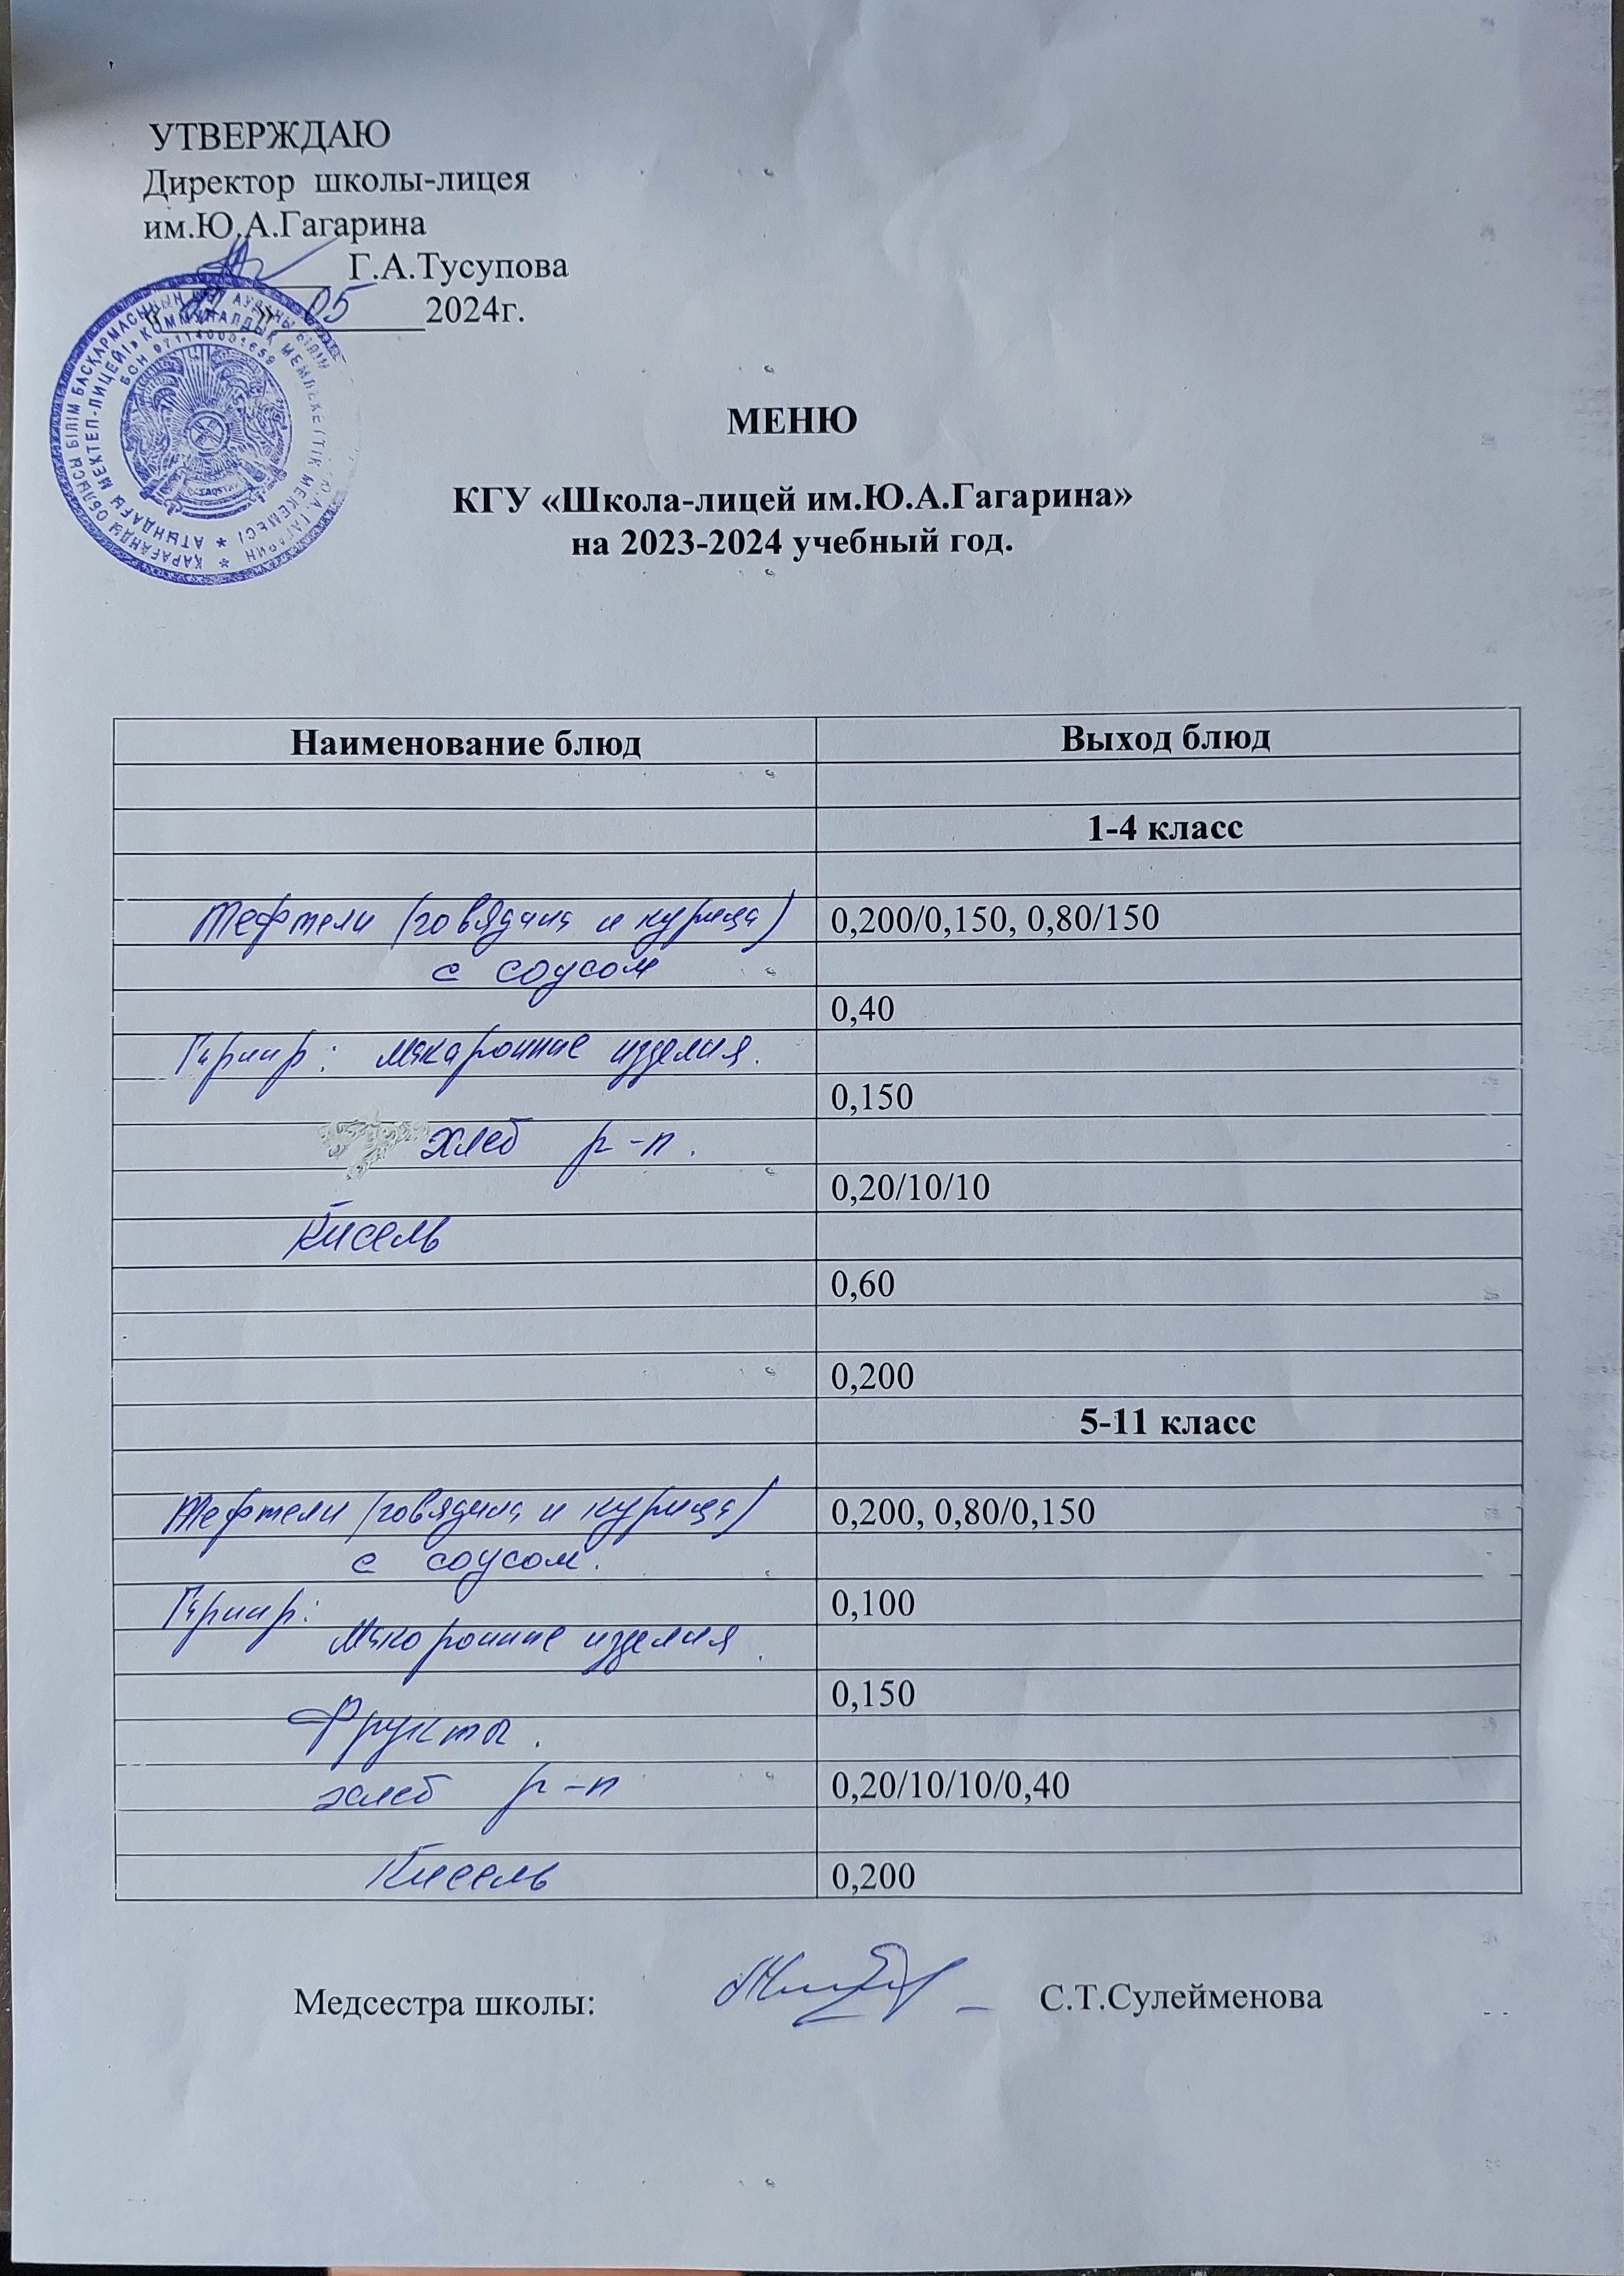 УТВЕРЖДАЮ
Директор школы-лицея
им.Ю.А.Гагарина
Г.А.Тусупова
05 2024г.
БСН 971140001659
МЕНЮ
КГУ «Школа-лицей им.Ю.А.Гагарина»
на 2023-2024 учебный год.
Наименование блюд Выход блюд
1-4 класс
Тефтели (говядина и курица) 0,200/0,150, 0,80/150
с соусом
0,40
Гарнир: макаронние изделия.
0,150
хлеб р-п.
0,20/10/10
Кисель
0,60
0,200
5-11 класс
Тефтели (говядина и курица) 0,200, 0,80/0,150
с соусом.
Гарнир: 0,100
Макоронние изделия.
0,150
Фрукты.
хлеб р-п 0,20/10/10/0,40
Кисель 0,200
Медсестра школы: С.Т.Сулейменова